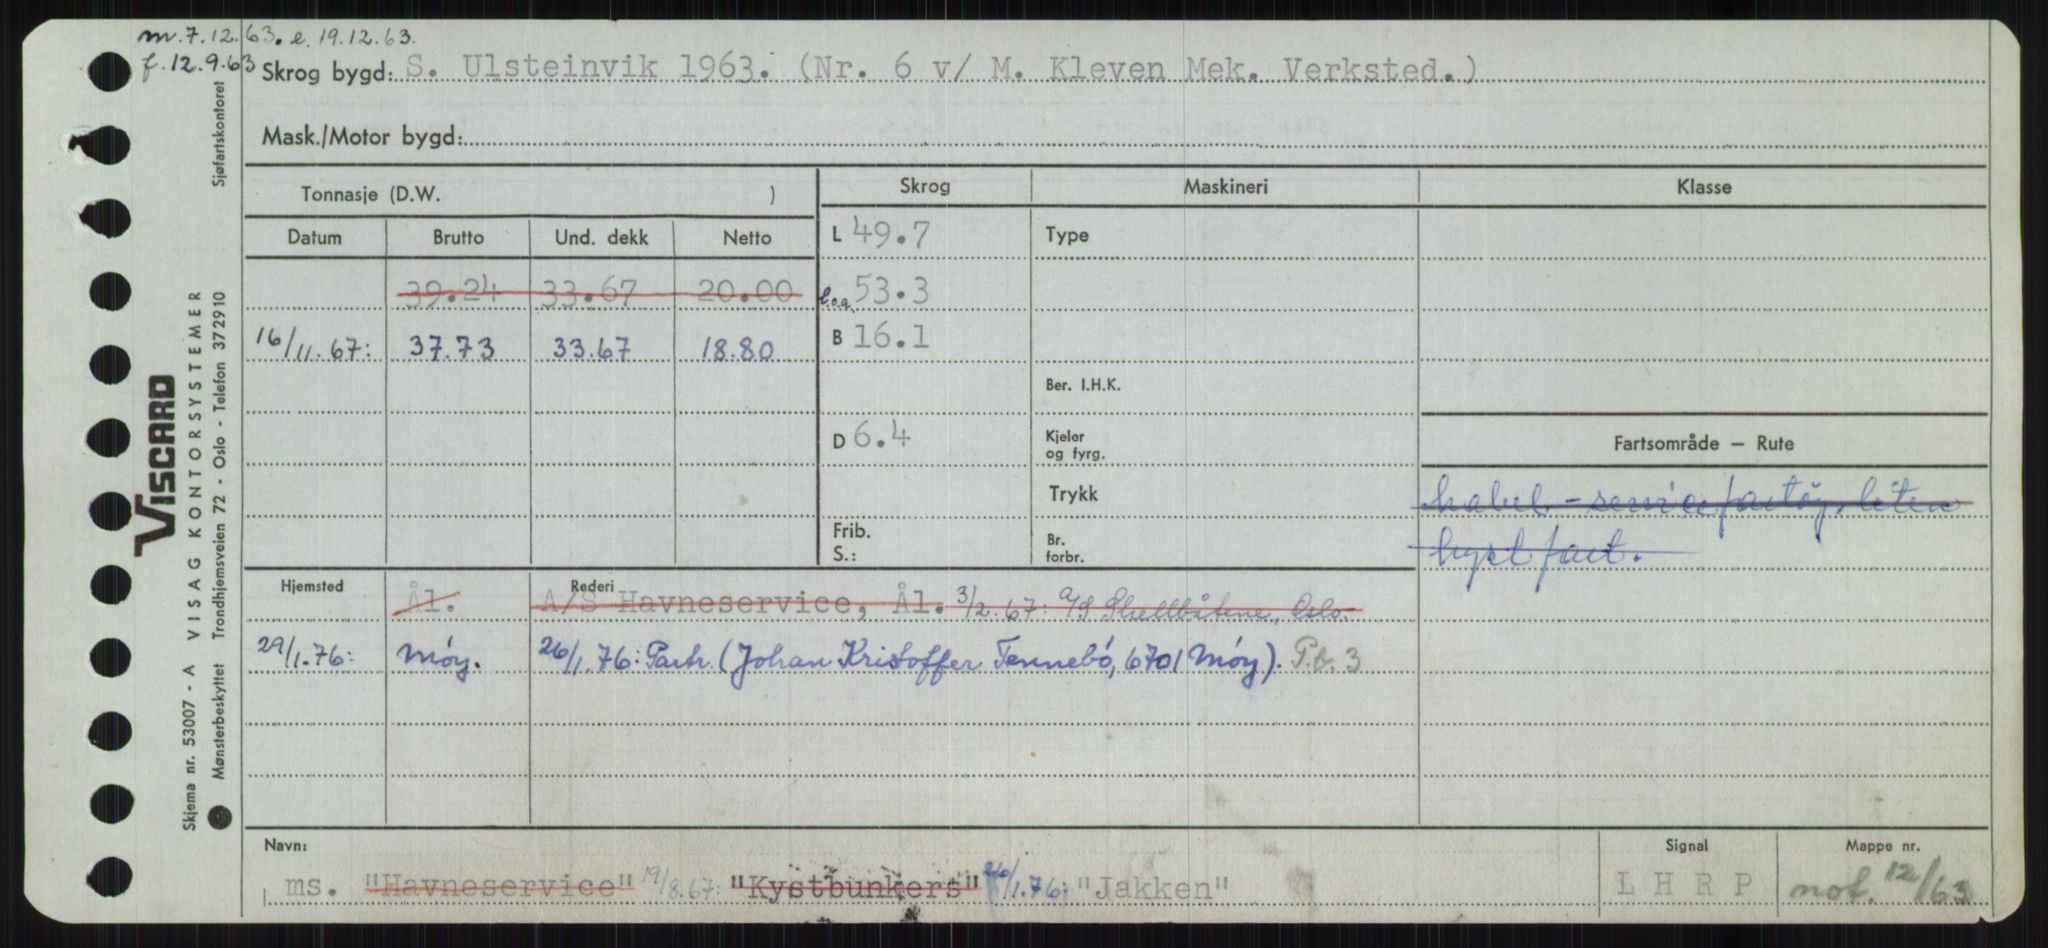 m. 7.12.63. e. 19.12.63.
f. 12.9.63
Skrog bygd: S. Ulsteinvik 1963. (Nr. 6 v/ M. Kleven Mek. Verksted.)
Mask./Motor bygd:
Tonnasje (D.W. )
Skrog Maskineri Klasse
Datum Brutto Und. dekk Netto
L 49.7 Type
39.24 33.67 20.00
l.o.a. 53.3
16/11.67: 37.73 33.67 18.80
B 16.1
Ber. I.H.K.
D 6.4
Kjeler
og fyrg.
Fartsområde — Rute
Trykk
kabel - servicefartøy, liten
kystfart.
Frib.
S.:
Br.
forbr.
Hjemsted Rederi
Ål. A/S Havneservice, Ål. 3/2.67: A/S Shellbåtene, Oslo.
29/1.76: Måøy. 26/1.76: Partr. (Johan Kristoffer Tennebó, 6701 Måøy). P.b. 3
Navn: Signal Mappe nr.
ms. "Havneservice" 19/8.67: "Kystbunkers" 26/1.76: "Jakken" L H R P not. 12/63
VISCARD
VISAG KONTORSYSTEMER
Skjema nr. 53007 - A
Mønsterbeskyttet Trondhjemsveien 72 - Oslo - Telefon 372910 Sjøfartskontoret